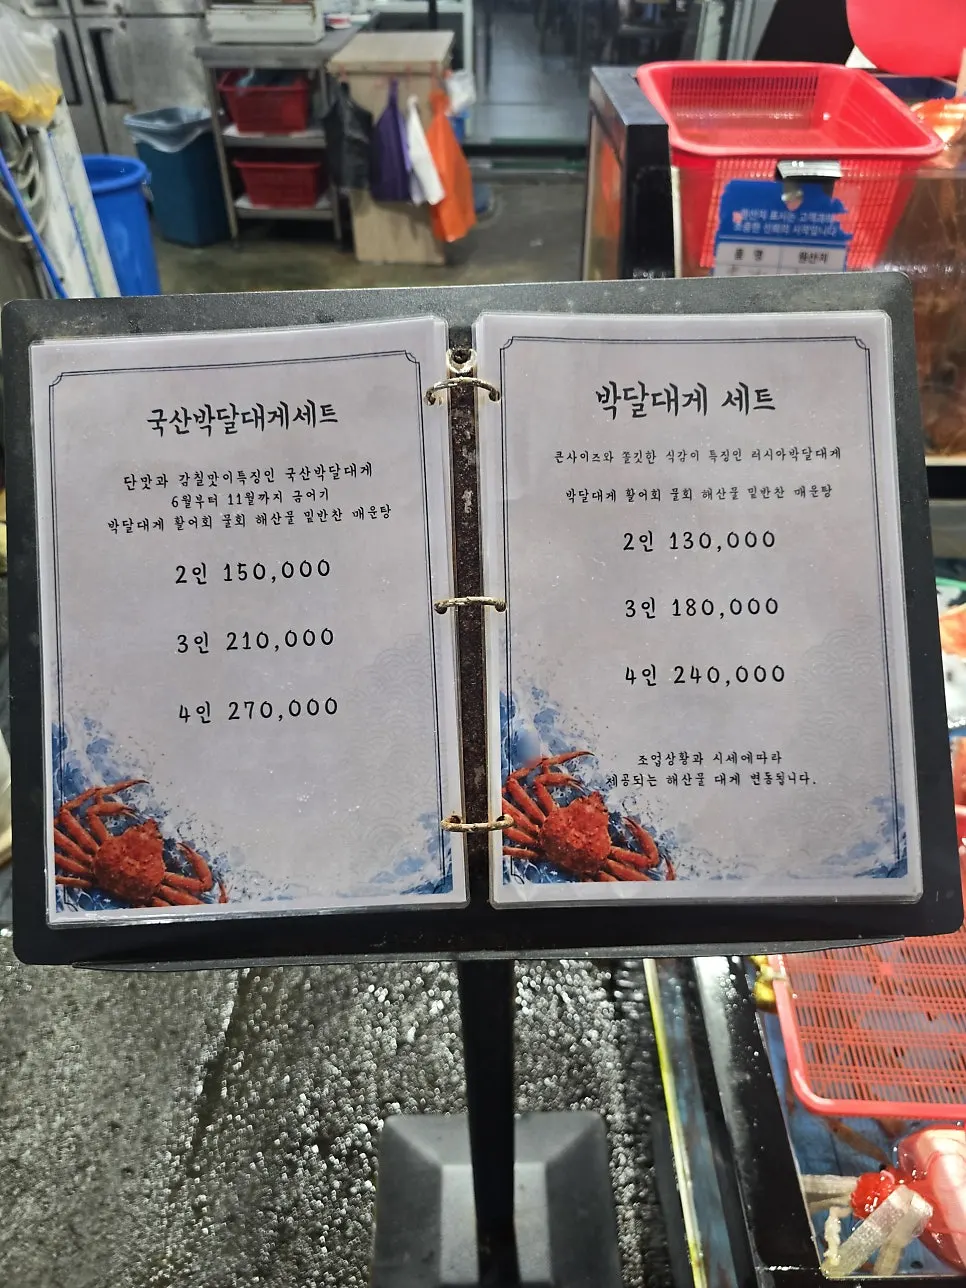 원산지 표시는 고객과의
소중한 신뢰의 시작입니다
품 명 원산지
국산박달대게세트
단맛과 감칠맛이특징인 국산박달대게
6월부터 11월까지 금어기
박달대게 활어회 물회 해산물 밑반찬 매운탕
2인 150,000
3인 210,000
4인 270,000
박달대게 세트
큰사이즈와 쫄깃한 식감이 특징인 러시아박달대게
박달대게 활어회 물회 해산물 밑반찬 매운탕
2인 130,000
3인 180,000
4인 240,000
조업상황과 시세에따라
제공되는 해산물 대게 변동됩니다.